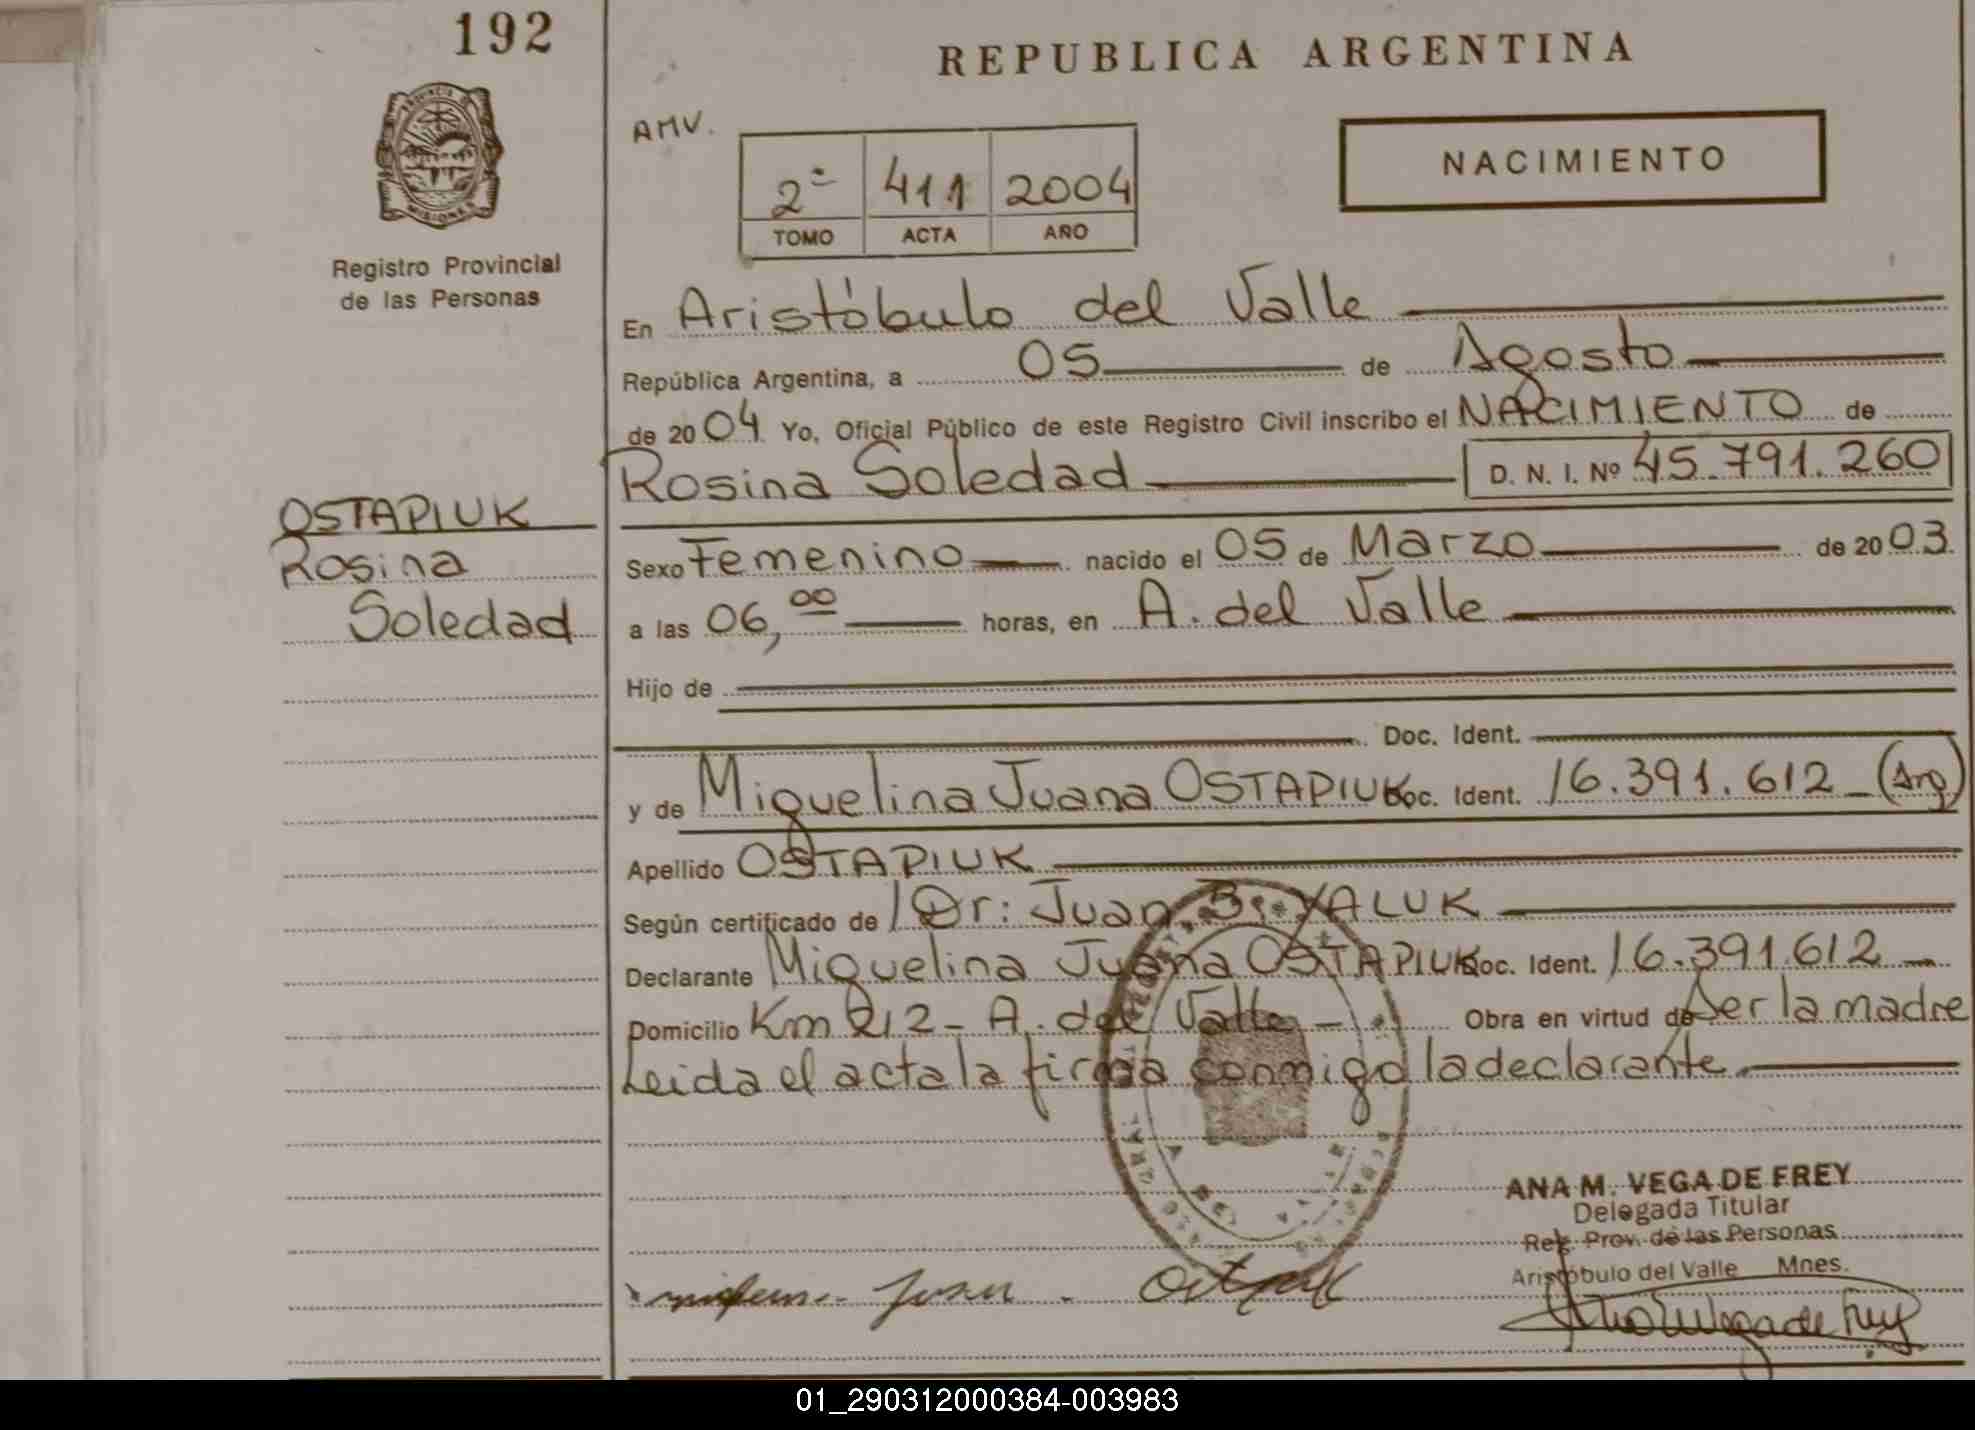 192
REPUBLICA ARGENTINA
AMV.
NACIMIENTO
2º 411 2004
TOMO ACTA AÑO
MISIONES
Registro Provincial
de las Personas
En Aristóbulo del Valle
República Argentina, a 05 de Agosto
de 2004 Yo, Oficial Público de este Registro Civil inscribo el NACIMIENTO de
Rosina Soledad D. N. I. Nº 45.791.260
OSTAPIUK
Rosina
Soledad
Sexo Femenino nacido el 05 de Marzo de 2003.
a las 06,00 horas, en A. del Valle
Hijo de
Doc. Ident.
y de Miguelina Juana OSTAPIUK Doc. Ident. 16.391.612 (Arg)
Apellido OSTAPIUK
Según certificado de Dr: Juan B. YALUK
Declarante Miguelina Juana OSTAPIUK Doc. Ident. 16.391.612
Domicilio Km 212 - A. del Valle - Obra en virtud de Ser la madre
Leida el acta la firma conmigo la declarante.
ANA M. VEGA DE FREY
Delegada Titular
Reg. Prov. de las Personas
Aristóbulo del Valle Mnes.
01_290312000384-003983